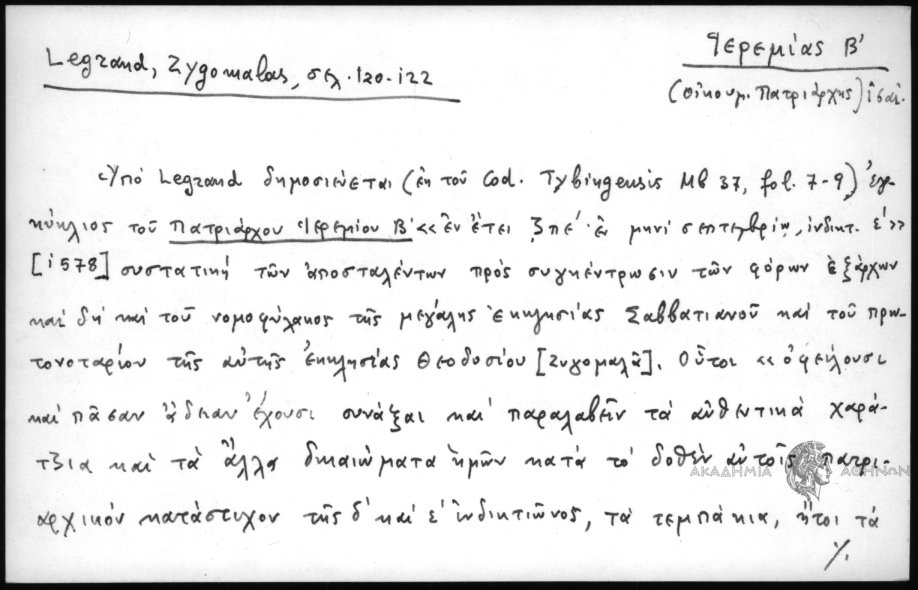 Ἱερεμίας Β'
Legrand, Zygomalas, σελ. 120-122
(οἰκουμ. Πατριάρχης)
Ὑπό Legrand δημοσιεύεται (ἐκ τοῦ Cod. Tybingensis Mb 37, fol. 7-9) ἐγ-
κύκλιος τοῦ Πατριάρχου Ἱερεμίου Β' «ἐν ἔτει ζπέ ἐν μηνί σεπτεμβρίῳ, ἰνδικτ. ε'»
[1578] συστατική τῶν ἀποσταλέντων πρός συγκέντρωσιν τῶν φόρων ἐξάρχων
καί δή καί τοῦ νομοφύλακος τῆς μεγάλης ἐκκλησίας Σαββατιανοῦ καί τοῦ πρω-
τονοταρίου τῆς αὐτῆς ἐκκλησίας Θεοδοσίου [Ζυγομαλᾶ]. Οὗτοι «ὀφείλουσι
καί πᾶσαν ἄδειαν ἔχουσι συνᾶξαι καί παραλαβεῖν τά αὐθεντικά χαρά-
τζια καί τά ἄλλα δικαιώματα ἡμῶν κατά τό δοθέν αὐτοῖς πατρι-
ΑΚΑΔΗΜΙΑ ΑΘΗΝΩΝ
αρχικόν κατάστιχον τῆς δ' καί ε' ἰνδικτιῶνος, τά τεμπάκια, ἤτοι τά
%.